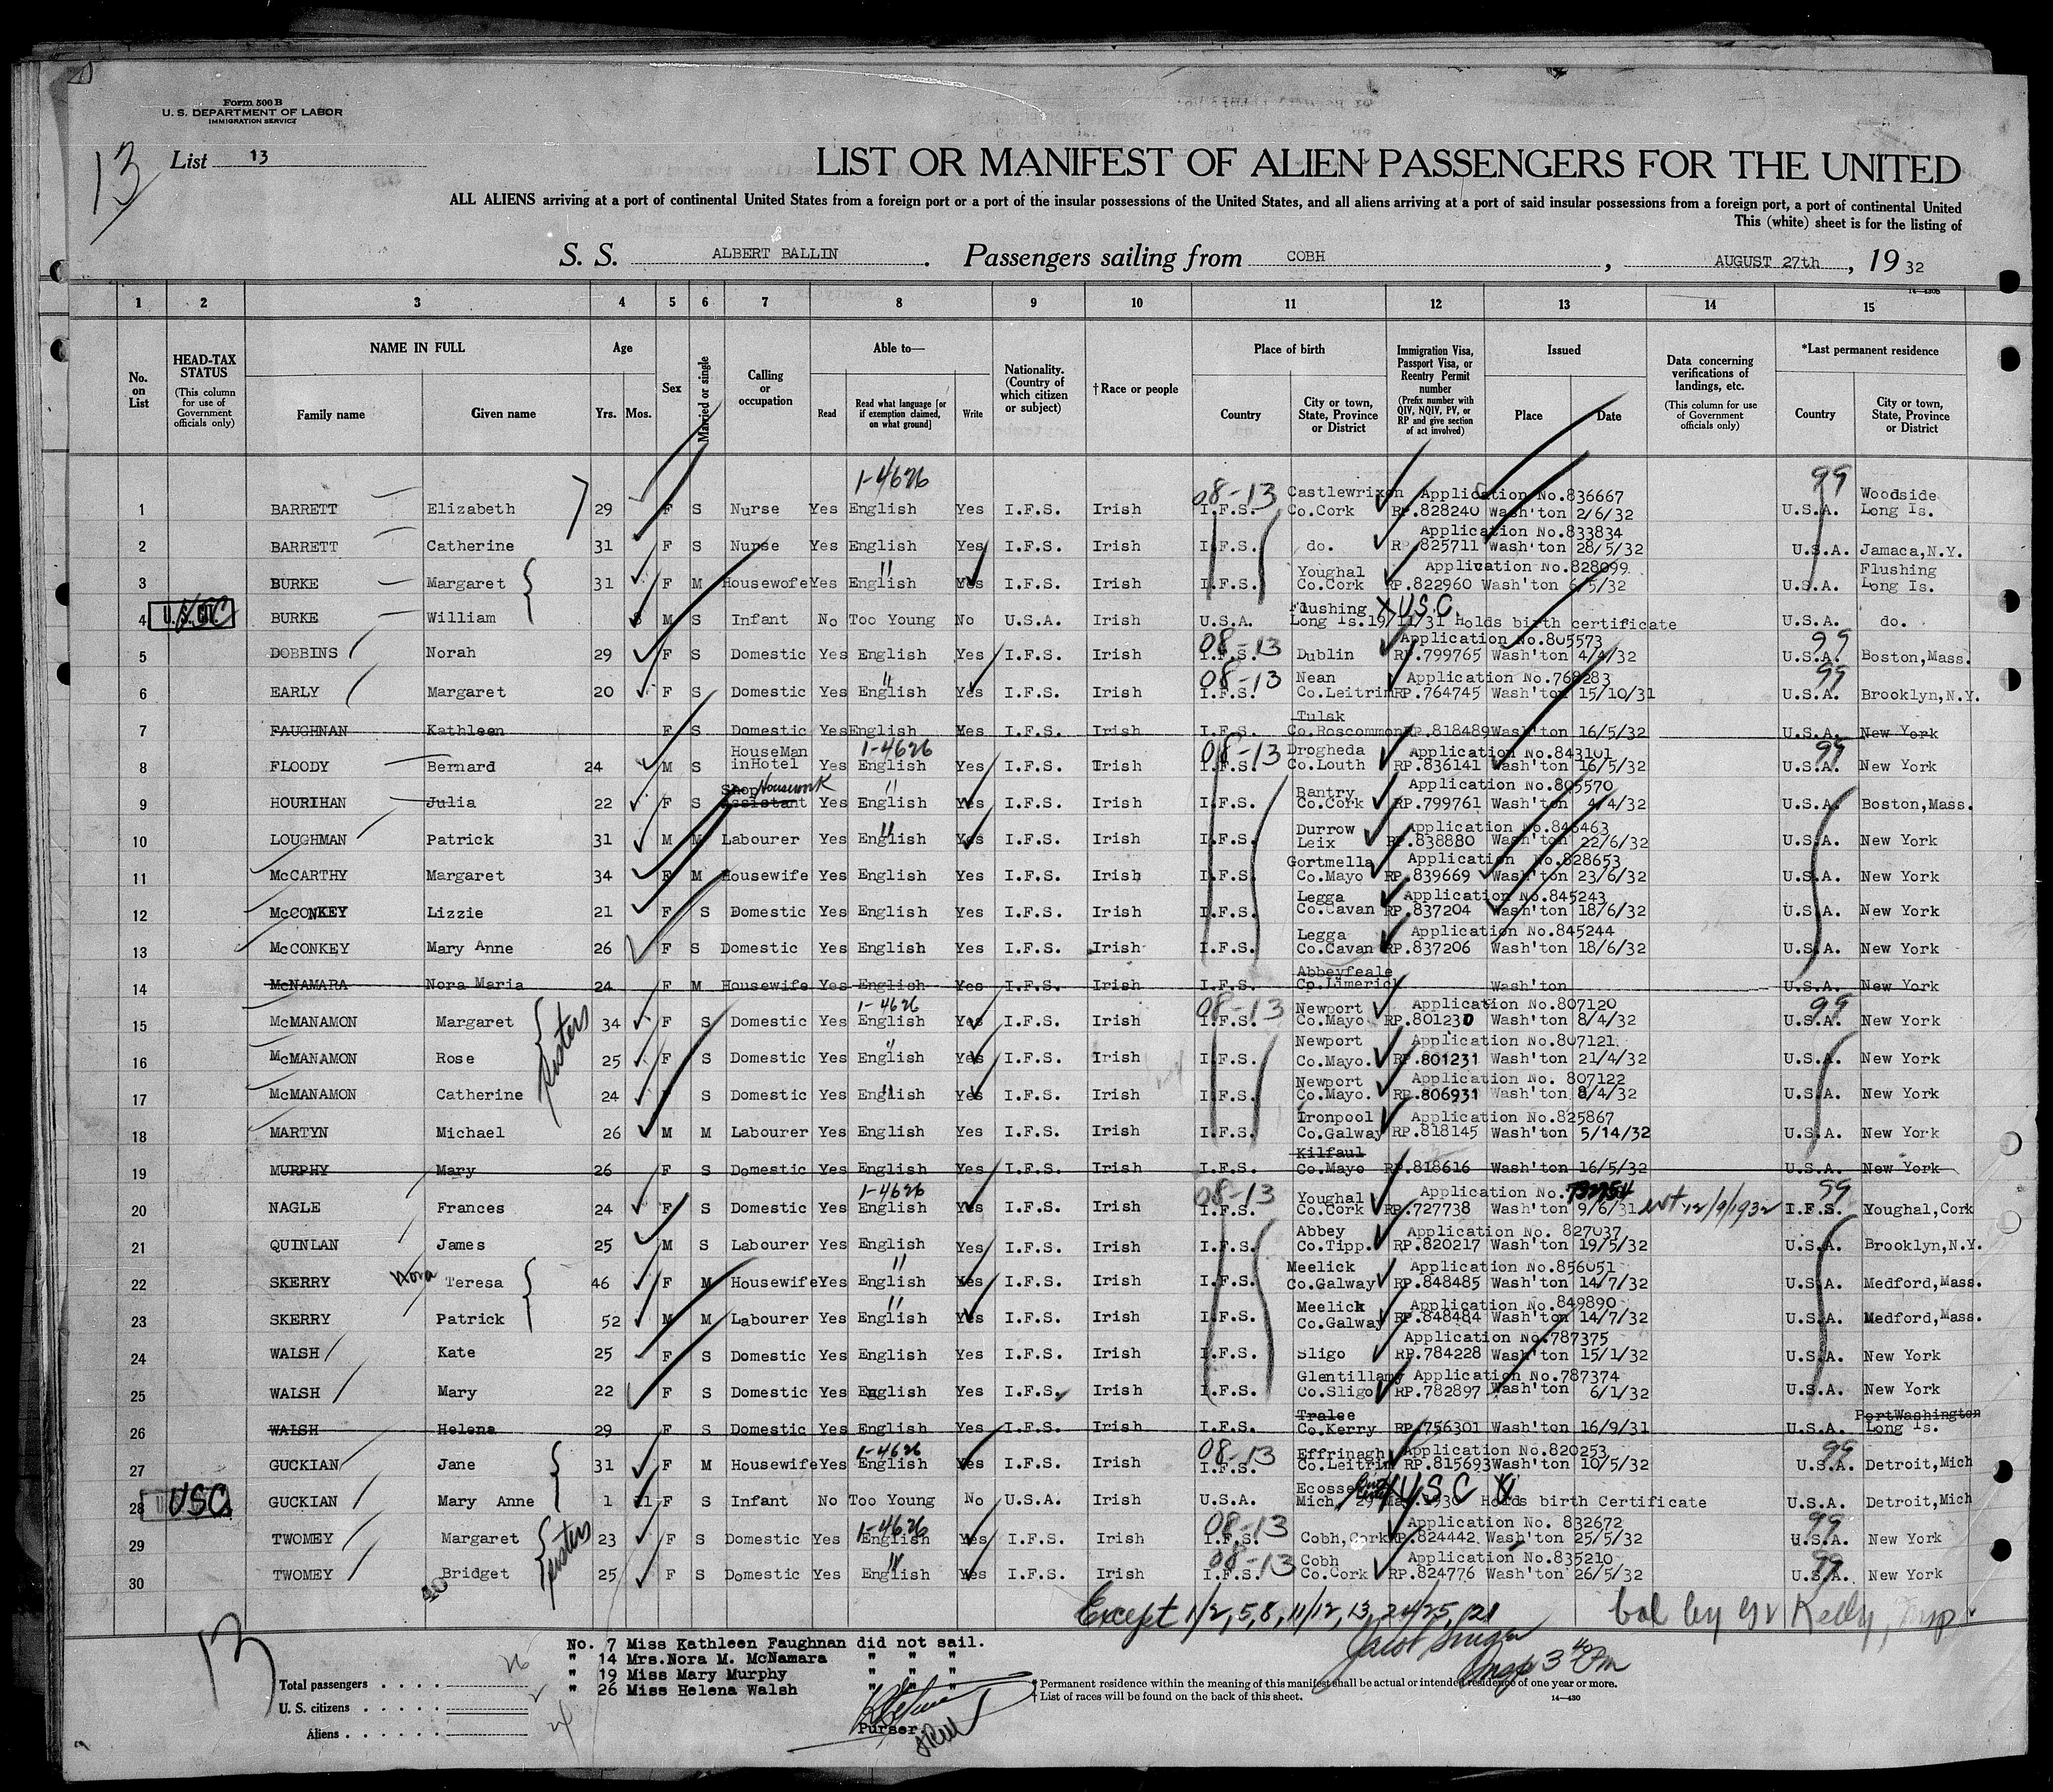 Form 500 B
U. S. DEPARTMENT OF LABOR
IMMIGRATION SERVICE
13
List 13
LIST OR MANIFEST OF ALIEN PASSENGERS FOR THE UNITED
ALL ALIENS arriving at a port of continental United States from a foreign port or a port of the insular possessions of the United States, and all aliens arriving at a port of said insular possessions from a foreign port, a port of continental United
This (white) sheet is for the listing of
S. S. ALBERT BALLIN . Passengers sailing from COBH , AUGUST 27th , 19 32
14—430B
1 2 3 4 5 6 7 8 9 10 11 12 13 14 15
No. on List
HEAD-TAX STATUS (This column for use of Government officials only)
NAME IN FULL Family name Given name
Age Yrs. Mos.
Sex
Married or single
Calling or occupation
Able to— Read Read what language [or if exemption claimed, on what ground] Write
Nationality. (Country of which citizen or subject)
†Race or people
Place of birth Country City or town, State, Province or District
Immigration Visa, Passport Visa, or Reentry Permit number (Prefix number with QIV, NQIV, PV, or RP and give section of act involved)
Issued Place Date
Data concerning verifications of landings, etc. (This column for use of Government officials only)
*Last permanent residence Country City or town, State, Province or District
1-4626 08-13 Castlewrixon Application No.836667 99 Woodside
1 BARRETT Elizabeth 29 F S Nurse Yes English Yes I.F.S. Irish I.F.S. Co.Cork RP.828240 Wash'ton 2/6/32 U.S.A. Long Is.
Application No.833834
2 BARRETT Catherine 31 F S Nurse Yes English Yes I.F.S. Irish I.F.S. do. RP 825711 Wash'ton 28/5/32 U.S.A. Jamaca,N.Y.
" Youghal Application No.828099 Flushing
3 BURKE Margaret 31 F M Housewofe Yes English Yes I.F.S. Irish I.F.S. Co.Cork RP.822960 Wash'ton 6/5/32 U.S.A. Long Is.
Flushing X U.S.C.
4 U.S. CIT. BURKE William 8 M S Infant No Too Young No U.S.A. Irish U.S.A. Long Is.19/11/31 Holds birth certificate U.S.A. do.
08-13 Application No.805573 99
5 DOBBINS Norah 29 F S Domestic Yes English Yes I.F.S. Irish I.F.S. Dublin RP.799765 Wash'ton 4/4/32 U.S.A. Boston,Mass.
" 08-13 Nean Application No.768283 99
6 EARLY Margaret 20 F S Domestic Yes English Yes I.F.S. Irish I.F.S. Co.Leitrim RP.764745 Wash'ton 15/10/31 U.S.A. Brooklyn,N.Y.
Tulsk
7 FAUGHNAN Kathleen F S Domestic Yes English Yes I.F.S. Irish I.F.S. Co.Roscommon RP.818489 Wash'ton 16/5/32 U.S.A. New York
HouseMan 1-4626 08-13 Drogheda Application No.843101 99
8 FLOODY Bernard 24 M S inHotel Yes English Yes I.F.S. Irish I.F.S. Co.Louth RP.836141 Wash'ton 16/5/32 U.S.A. New York
Shop Housework " Bantry Application No.805570
9 HOURIHAN Julia 22 F S Assistant Yes English Yes I.F.S. Irish I.F.S. Co.Cork RP.799761 Wash'ton 4/4/32 U.S.A. Boston,Mass.
" Durrow Application No.846463
10 LOUGHMAN Patrick 31 M M Labourer Yes English Yes I.F.S. Irish I.F.S. Leix RP.838880 Wash'ton 22/6/32 U.S.A. New York
Gortmella Application No.828653
11 McCARTHY Margaret 34 F M Housewife Yes English Yes I.F.S. Irish I.F.S. Co.Mayo RP.839669 Wash'ton 23/6/32 U.S.A. New York
Legga Application No.845243
12 McCONKEY Lizzie 21 F S Domestic Yes English Yes I.F.S. Irish I.F.S. Co.Cavan RP.837204 Wash'ton 18/6/32 U.S.A. New York
Legga Application No.845244
13 McCONKEY Mary Anne 26 F S Domestic Yes English Yes I.F.S. Irish I.F.S. Co.Cavan RP.837206 Wash'ton 18/6/32 U.S.A. New York
Abbeyfeale
14 McNAMARA Nora Maria 24 F M Housewife Yes English Yes I.F.S. Irish I.F.S. Co.Limerick Wash'ton U.S.A. New York
1-4626 08-13 Newport Application No.807120 99
15 McMANAMON Margaret sisters 34 F S Domestic Yes English Yes I.F.S. Irish I.F.S. Co.Mayo RP.801230 Wash'ton 8/4/32 U.S.A. New York
" Newport Application No.807121
16 McMANAMON Rose 25 F S Domestic Yes English Yes I.F.S. Irish I.F.S. Co.Mayo. RP.801231 Wash'ton 21/4/32 U.S.A. New York
" Newport Application No. 807122
17 McMANAMON Catherine 24 F S Domestic Yes English Yes I.F.S. Irish I.F.S. Co.Mayo. RP.806931 Wash'ton 8/4/32 U.S.A. New York
Ironpool Application No.825867
18 MARTYN Michael 26 M M Labourer Yes English Yes I.F.S. Irish I.F.S. Co.Galway RP.818145 Wash'ton 5/14/32 U.S.A. New York
Kilfaul
19 MURPHY Mary 26 F S Domestic Yes English Yes I.F.S. Irish I.F.S. Co.Mayo RP.818616 Wash'ton 16/5/32 U.S.A. New York
1-4626 08-13 Youghal Application No. 732754 99
20 NAGLE Frances 24 F S Domestic Yes English Yes I.F.S. Irish I.F.S. Co.Cork RP.727738 Wash'ton 9/6/31 ext 12/9/1932 I.F.S. Youghal,Cork
Abbey Application No. 827037
21 QUINLAN James 25 M S Labourer Yes English Yes I.F.S. Irish I.F.S. Co.Tipp. RP.820217 Wash'ton 19/5/32 U.S.A. Brooklyn,N.Y.
" Meelick Application No.856051
22 SKERRY Nora Teresa 46 F M Housewife Yes English Yes I.F.S. Irish I.F.S. Co.Galway RP.848485 Wash'ton 14/7/32 U.S.A. Medford,Mass.
" Meelick Application No.849890
23 SKERRY Patrick 52 M M Labourer Yes English Yes I.F.S. Irish I.F.S. Co.Galway RP.848484 Wash'ton 14/7/32 U.S.A. Medford,Mass.
Application No.787375
24 WALSH Kate 25 F S Domestic Yes English Yes I.F.S. Irish I.F.S. Sligo RP.784228 Wash'ton 15/1/32 U.S.A. New York
Glentillamy Application No.787374
25 WALSH Mary 22 F S Domestic Yes English Yes I.F.S. Irish I.F.S. Co.Sligo RP.782897 Wash'ton 6/1/32 U.S.A. New York
Tralee PortWashington
26 WALSH Helena 29 F S Domestic Yes English Yes I.F.S. Irish I.F.S. Co.Kerry RP.756301 Wash'ton 16/9/31 U.S.A. Long Is.
1-4626 08-13 Effrinagh Application No.820253 99
27 GUCKIAN Jane 31 F M Housewife Yes English Yes I.F.S. Irish I.F.S. Co.Leitrim RP.815693 Wash'ton 10/5/32 U.S.A. Detroit,Mich
Ecosse X U S C X
28 USC GUCKIAN Mary Anne 1 11 F S Infant No Too Young No U.S.A. Irish U.S.A. Mich. 29 1930 Holds birth Certificate U.S.A. Detroit,Mich
1-4626 08-13 Application No. 832672 99
29 TWOMEY Margaret sisters 23 F S Domestic Yes English Yes I.F.S. Irish I.F.S. Cobh,Cork RP.824442 Wash'ton 25/5/32 U.S.A. New York
" 08-13 Cobh Application No.835210 99
30 TWOMEY Bridget 25 F S Domestic Yes English Yes I.F.S. Irish I.F.S. Co.Cork RP.824776 Wash'ton 26/5/32 U.S.A. New York
Except 1/2, 5, 8, 11/12, 13, 24/25, /21
13
No. 7 Miss Kathleen Faughnan did not sail.
" 14 Mrs.Nora M. McNamara " " "
" 19 Miss Mary Murphy " " "
" 26 Miss Helena Walsh " " "
Purser.
Total passengers 26
U. S. citizens 2
Aliens 24
* Permanent residence within the meaning of this manifest shall be actual or intended residence of one year or more.
† List of races will be found on the back of this sheet.
14—430